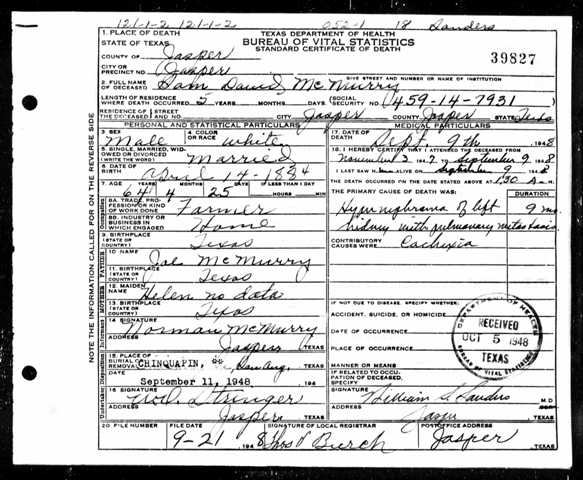 121-1-2 121-1-2 052-1 18 Sanders
1. PLACE OF DEATH
TEXAS DEPARTMENT OF HEALTH
BUREAU OF VITAL STATISTICS
STANDARD CERTIFICATE OF DEATH
39827
STATE OF TEXAS
COUNTY OF Jasper
CITY OR PRECINCT NO. Jasper
GIVE STREET AND NUMBER OR NAME OF INSTITUTION
2. FULL NAME OF DECEASED Sam David McMurry
LENGTH OF RESIDENCE WHERE DEATH OCCURRED 5 YEARS MONTHS DAYS (SOCIAL SECURITY NO. 459-14-7931)
RESIDENCE OF THE DECEASED STREET AND NO. CITY Jasper COUNTY Jasper STATE Texas
PERSONAL AND STATISTICAL PARTICULARS
MEDICAL PARTICULARS
3. SEX Male
4. COLOR OR RACE white
5. SINGLE, MARRIED, WIDOWED OR DIVORCED (WRITE THE WORD) Married
6. DATE OF BIRTH April 14-1884
7. AGE YEARS MONTHS DAYS IF LESS THAN 1 DAY
64 4 25 HOURS MIN
8A. TRADE, PROFESSION OR KIND OF WORK DONE Farmer
8B. INDUSTRY OR BUSINESS IN WHICH ENGAGED Home
9. BIRTHPLACE (STATE OR COUNTRY) Texas
10. NAME Joe McMurry
11. BIRTHPLACE (STATE OR COUNTRY) Texas
12. MAIDEN NAME Helen no data
13. BIRTHPLACE (STATE OR COUNTRY) Texas
14. SIGNATURE Norman McMurry
ADDRESS Jasper TEXAS
15. PLACE OF BURIAL OR REMOVAL CHINQUAPIN, San Aug.
September 11, 1948 194
16. SIGNATURE
ADDRESS Jasper TEXAS
17. DATE OF DEATH Sept 9th 1948
18. I HEREBY CERTIFY THAT I ATTENDED THE DECEASED FROM
November 3 1947 TO September 9 1948
I LAST SAW H ALIVE ON September 9 1948
THE DEATH OCCURRED ON THE DATE STATED ABOVE AT 1:30 M.
THE PRIMARY CAUSE OF DEATH WAS: DURATION
Hypernephroma of left 9 mo
kidney with pulmonary metastasis
CONTRIBUTORY CAUSES WERE: Cachexia
IF NOT DUE TO DISEASE, SPECIFY WHETHER:
ACCIDENT, SUICIDE, OR HOMICIDE
DATE OF OCCURRENCE
PLACE OF OCCURRENCE
MANNER OR MEANS
IF RELATED TO OCCUPATION OF DECEASED, SPECIFY
SIGNATURE William S. Sanders M D
ADDRESS Jasper TEXAS
DEPARTMENT OF HEALTH
RECEIVED
OCT 5 1948
TEXAS
BUREAU OF VITAL STATISTICS
20. FILE NUMBER FILE DATE SIGNATURE OF LOCAL REGISTRAR POSTOFFICE ADDRESS
9-21 1948 Thos P Burch Jasper, TEXAS
NOTE THE INFORMATION CALLED FOR ON THE REVERSE SIDE